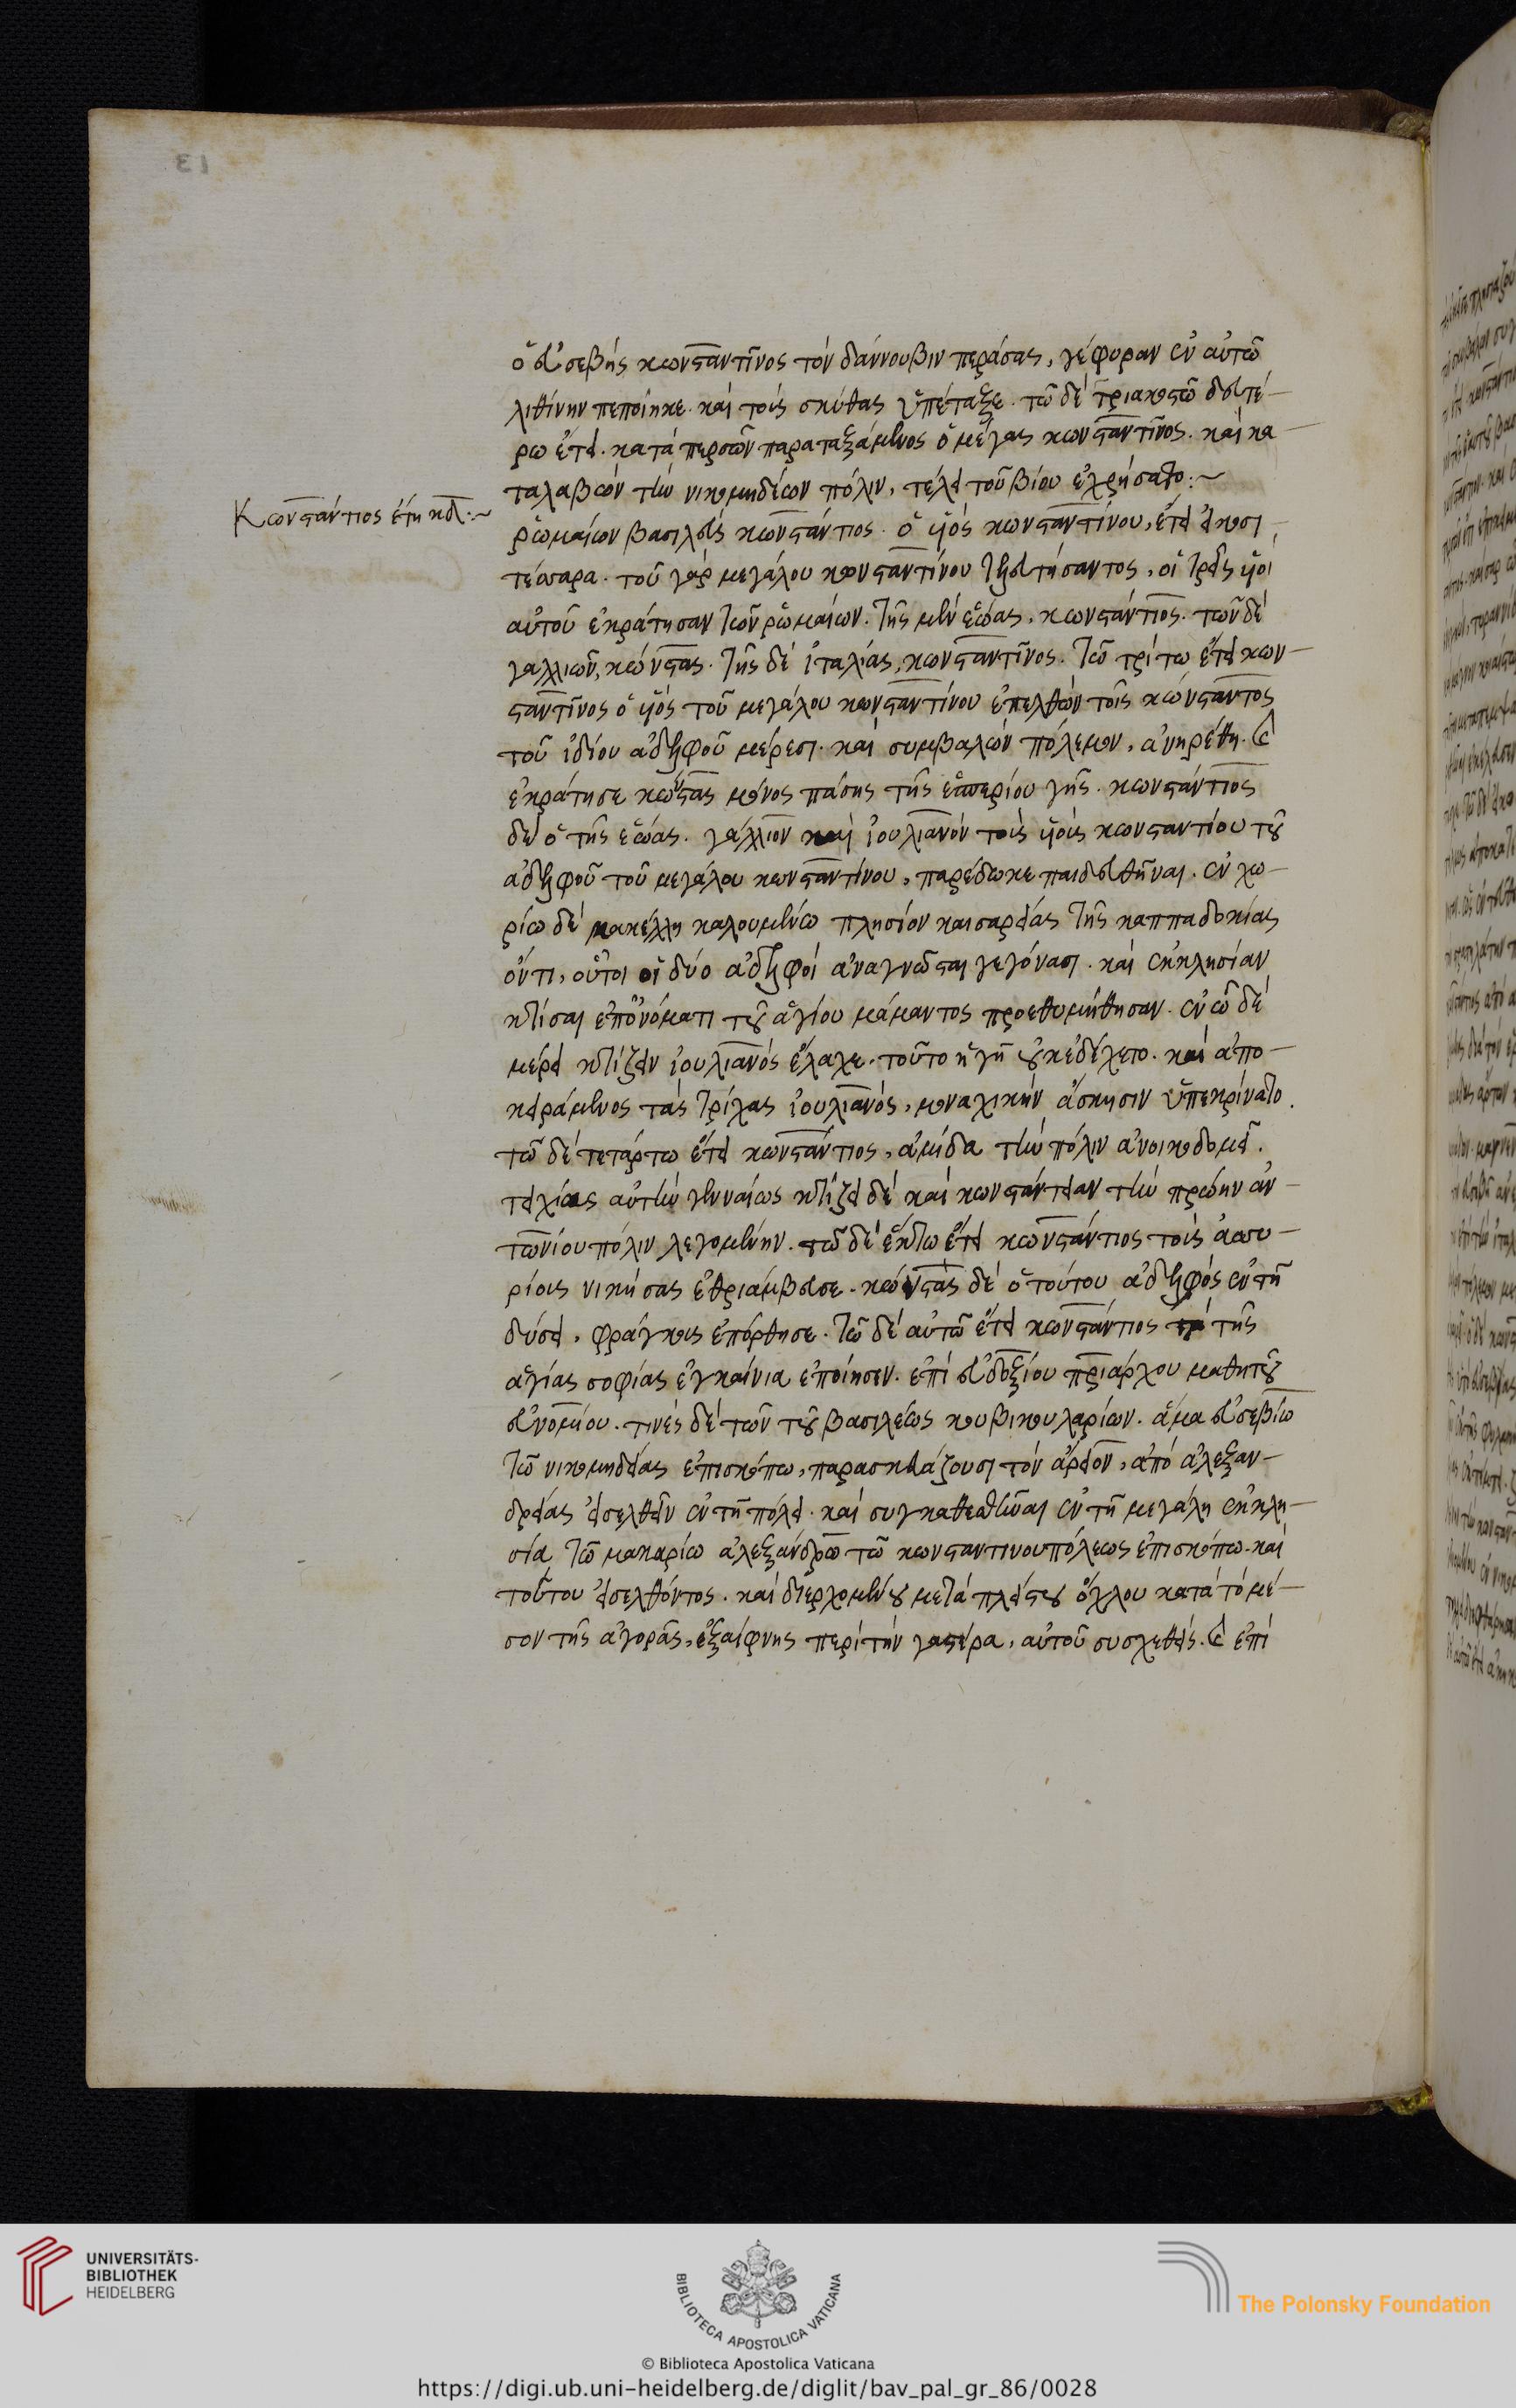 ὁ εὐσεβὴς κωνσταντῖνος τὸν δάννουβιν περάσας, γέφυραν ἐν αὐτῶ
λιθίνην πεποίηκε. καὶ τοὺς σκύθας ὑπέταξε. τῶ δὲ τριακοστῶ δευτέ-
ρω ἔτει. κατὰ περσῶν παραταξάμενος ὁ μέγας κωνσταντῖνος. καὶ κα-
ταλαβὼν τὴν νικομηδέων πόλιν, τέλει τοῦ βίου ἐχρήσατο:~
Κωνστάντιος ἔτη κδ:~
ῥωμαίων βασιλεὺς κωνστάντιος. ὁ υἱὸς κωνσταντίνου, ἔτει εἴκοσι
τέσσαρα. τοῦ γὰρ μεγάλου κονσταντίνου τελευτήσαντος, οἱ τρεῖς υἱοὶ
αὐτοῦ ἐκράτησαν τῶν ῥωμαίων. τῆς μὲν ἑώας, κωνστάντιος. τῶν δὲ
γαλλιῶν, κώνστας. τῆς δὲ ἰταλίας, κωνσταντῖνος. τῶ τρίτω ἔτει κων-
σταντῖνος ὁ υἱὸς τοῦ μεγάλου κωνσταντίνου ἐπελθὼν τοῖς κώνσταντος
τοῦ ἰδίου ἀδελφοῦ μέρεσι. καὶ συμβαλὼν πόλεμον, ἀνηρέθη. καὶ
ἐκράτησε κώνστας μόνος πάσης τῆς ἑσπερίου γῆς. κωνστάντιος
δὲ ὁ τῆς ἑώας. γάλλιον καὶ ἰουλιανὸν τοὺς υἱοὺς κωνσταντίου τοῦ
ἀδελφοῦ τοῦ μεγάλου κωνσταντίνου, παρέδωκε παιδευθῆναι. ἐν χω-
ρίω δὲ μακέλλη καλουμένω πλησίον καισαρείας τῆς καππαδοκίας
ὄντι, οὗτοι οἱ δύο ἀδελφοὶ ἀναγνῶσται γεγόνασι. καὶ ἐκκλησίαν
κτίσαι ἐπ' ὀνόματι τοῦ ἁγίου μάμαντος προεθυμήθησαν. ἐν ὧ δὲ
μέρει κτίζειν ἰουλιανὸς ἔλαχε. τοῦτο ἡ γῆ οὐκ ἐδέχετο. καὶ ἀπο-
κειράμενος τὰς τρίχας ἰουλιανὸς, μοναχικὴν ἄσκησιν ὑπεκρίνατο.
τῶ δὲ τετάρτω ἔτει κωνστάντιος, ἀμίδα τὴν πόλιν ἀνοικοδομεῖ.
τειχίσας αὐτὴν γενναίως κτίζει δὲ καὶ κωνστάντειαν τὴν πρώην ἀν-
τωνίου πόλιν λεγομένην. τῶ δὲ ἕκτω ἔτει κωνστάντιος τοὺς ἀσσυ-
ρίους νικήσας ἐθριάμβευσε. κώνστας δὲ ὁ τούτου ἀδελφὸς ἐν τῆ
δύσει, φράγκους ἐπόρθησε. τῶ δὲ αὐτῶ ἔτει κωνστάντιος τὰ τῆς
ἁγίας σοφίας ἐγκαίνια ἐποίησεν. ἐπὶ εὐδοξίου πριάρχου μαθητοῦ
εὐνομίου. τινὲς δὲ τῶν τοῦ βασιλέως κουβικουλαρίων. ἅμα εὐσεβίω
τῶ νικομηδείας ἐπισκόπω, παρασκευάζουσι τὸν ἄρειον, ἀπὸ ἀλεξαν-
δρείας εἰσελθεῖν ἐν τῆ πόλει. καὶ συγκαθεσθῆναι ἐν τῆ μεγάλη ἐκκλη-
σία τῶ μακαρίω ἀλεξάνδρω τῶ κωνσταντινουπόλεως ἐπισκόπω. καὶ
τούτου εἰσελθόντος. καὶ διερχομένου μετὰ πλείστου ὄχλου κατὰ τὸ μέ-
σον τῆς ἀγορᾶς, ἐξαίφνης περὶ τὴν γαστέρα, αὐτοῦ συσχεθεὶς. καὶ ἐπὶ
UNIVERSITÄTS-
BIBLIOTHEK
HEIDELBERG
BIBLIOTECA APOSTOLICA VATICANA
The Polonsky Foundation
© Biblioteca Apostolica Vaticana
https://digi.ub.uni-heidelberg.de/diglit/bav_pal_gr_86/0028